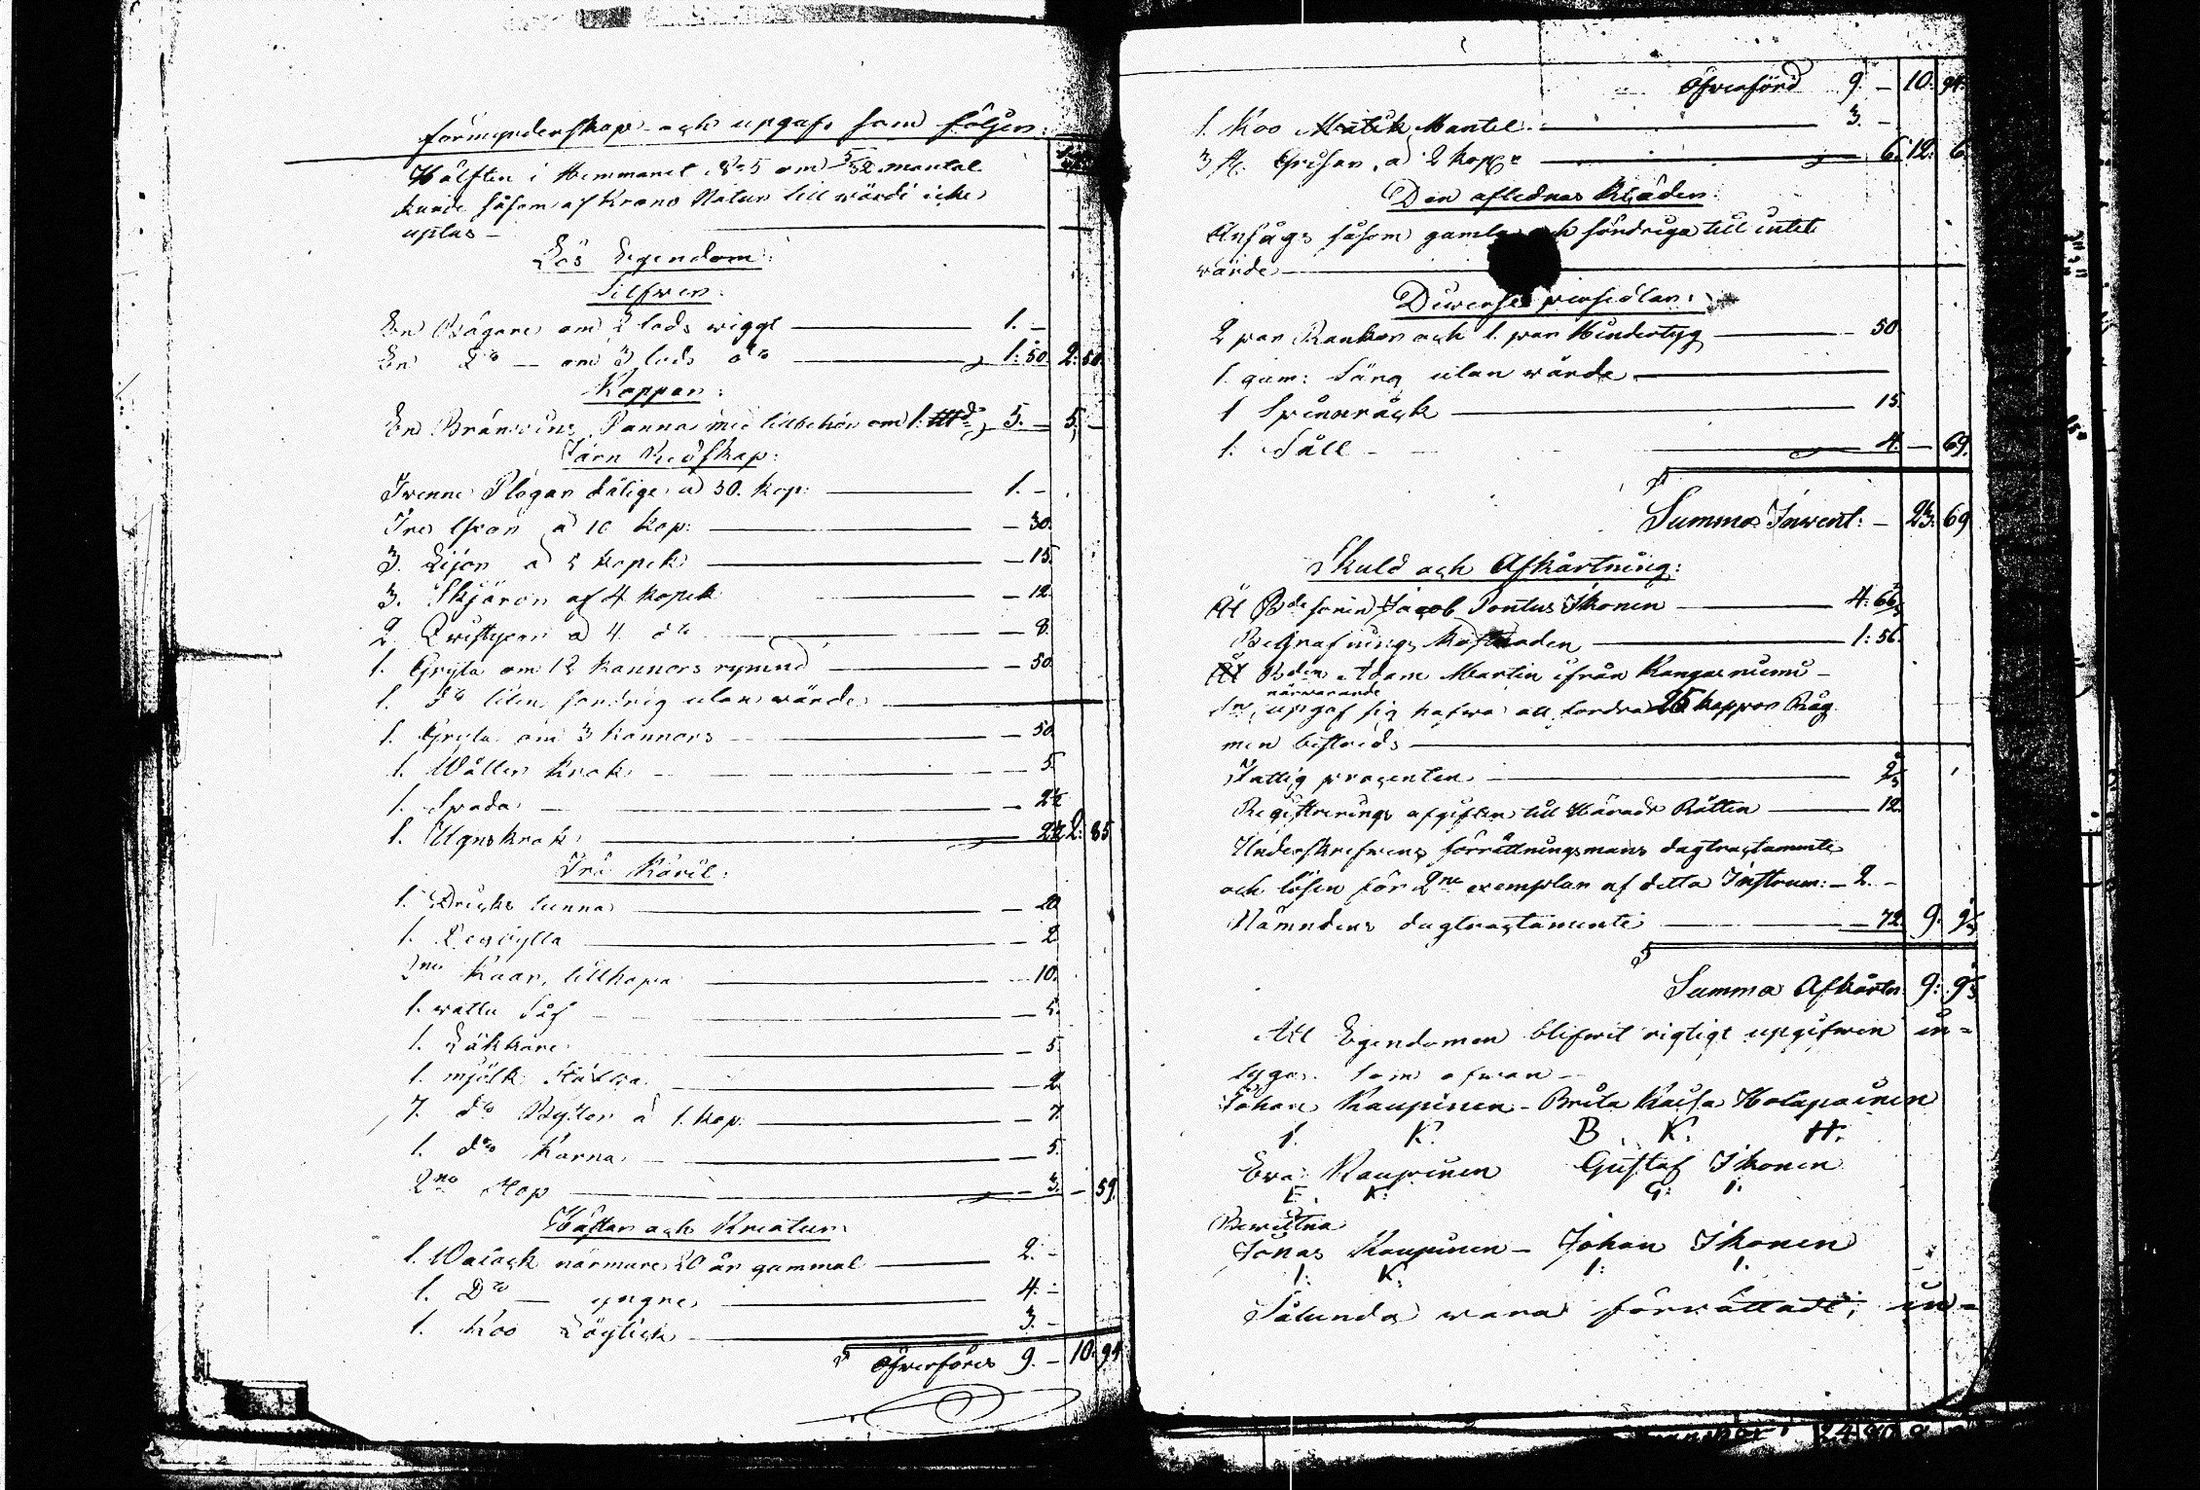 förmynderskap och upgafs som följer:
Hälften i Hemmanet No 5 om 5/32 mantal
kunde såsom af Krono Natur till värde icke
uptas —
Lös Egendom:
Silfwer:
En Bägare om 2 lods wiggt — 1. —
En Do — om 3 lods do — 1: 50 2: 50
Koppar:
En Bränwins Panna med tillbehör om 5. — 5. —
Järn Redskap:
Twenne Plogar dålige a 50. kop: — 1. —
Tre a 10 kop: — 30.
3. Lijor a 5 kopek — 15.
3. Skjäror af 4 kopek — 12.
2 a 4 do — 8.
1. Gryta om 12 kannors rymnd — 50
1. do liten söndrig utan wärde
1. Gryta om 3 kannors — 50
1. — 5.
1. Spada — 2½
1. Ugnskrok — 2½ 2: 85
Trä Käril:
1. Dricks tunna — 20
1. Degbytta — 2
2ne Kaar, tillhopa — 10.
1. watu Såf — 5.
1. — 5
1. mjölk — 2
7. do Byttor a 1. kop. — 7.
1. do Kärna — 5.
2ne Stop — 3. — 59.
Hästar och Kreatur:
1. Walack närmare 20 år gammal — 2. —
1. Do — yngre — 4. —
1. Koo Löylick — 3. —
Öfwerföres 9. — 10. 94

Öfwerförd 9. — 10. 94.
1. Koo Mantel. — 3. —
3 st. a 2 kop — 6. 12. 6.
Den aflednes Kläder:
Ansågs såsom gamla och söndriga till intet
wärde —
Diwerse persedlar:
2 par Rankor och 1. par Hindertyg — 50
1. gam: Säng utan wärde —
1 Spinnråck — 15.
1. Såll — 4. — 69.
Summa Invent: — 23. 69
Skuld och Afkårtning:
Jacob Pontus Ikonen — 4: 66
Begrafnings Kostnaden — 1: 56.
Adam Martin ifrån Kangasniemi —
närwarande
upgaf sig hafwa att fordra 25 kappar Råg
men bestrids —
Fattig procenten — 2
Registrerings afgiften till Härads Rätten — 12
Underskrefwens förrättningsmans dagtractamente
och lösen för 2ne exemplar af detta Instrum: — 2. —
Nämndens dagtractamente — 72 9: 9
Summa Afkårtn: 9: 9
Att Egendomen blifwit rigtigt upgifwen in-
tygar som ofwan —
Johan Kaupinen — Brita Kaisa Holopainen
I. K. B. K. H.
Ewa Kaupinen Gustaf Ikonen
E. K: G: I.
Bewittna
Jonas Kaupinen — Johan Ikonen
I: K. I: I.
Sålunda wara förrättadt, in-